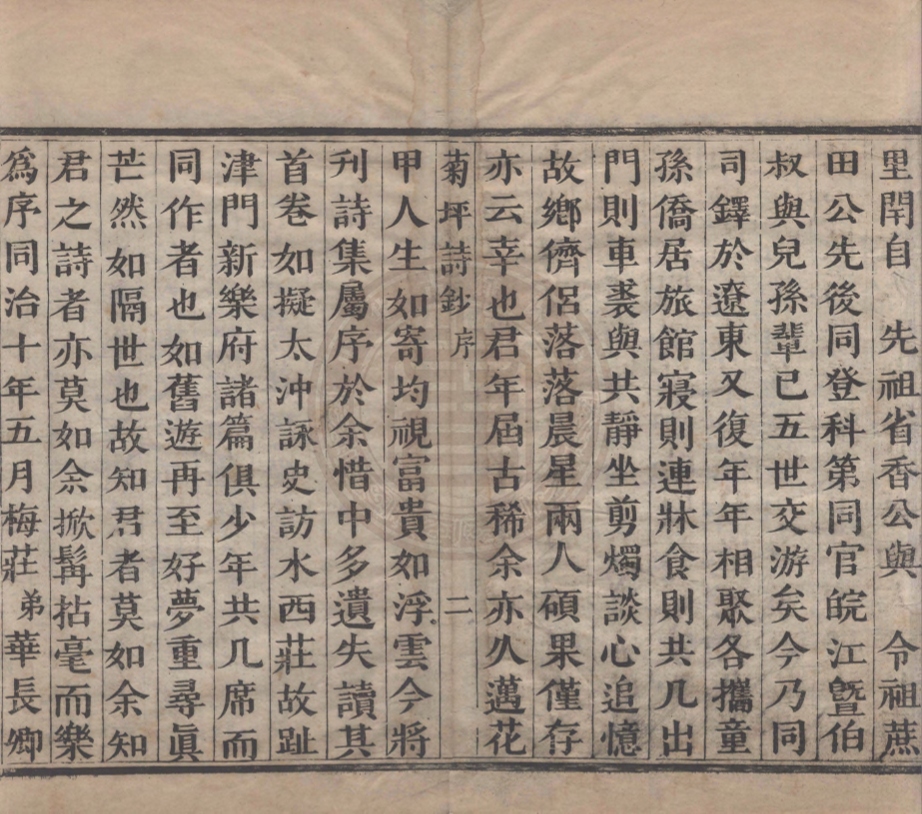 里閈自　先祖省香公與　令祖蔗
田公先後同登科第同官皖江曁伯
叔與兒孫輩已五世交游矣今乃同
司鐸於遼東又復年年相聚各攜童
孫僑居旅館寢則連牀食則共几出
門則車裘與共靜坐剪燭談心追憶
故鄉儕侶落落晨星兩人碩果僅存
亦云幸也君年屆古稀余亦久邁花
菊坪詩鈔　序　二
甲人生如寄均視富貴如浮雲今將
刊詩集屬序於余惜中多遺失讀其
首卷如擬太沖詠史訪水西莊故趾
津門新樂府諸篇俱少年共几席而
同作者也如舊遊再至好夢重尋眞
芒然如隔世也故知君者莫如余知
君之詩者亦莫如余掀髯拈毫而樂
爲序同治十年五月梅莊弟華長卿